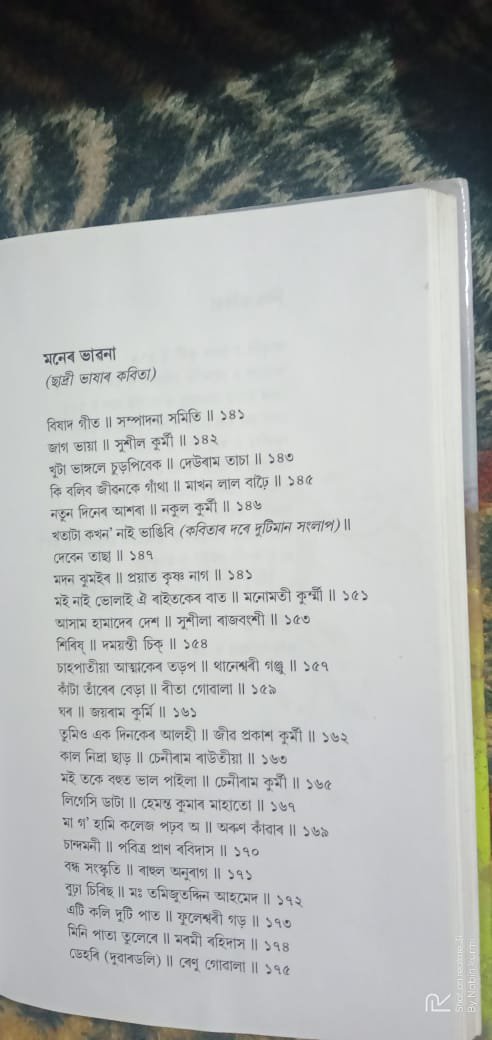 মনেৰ ভাৱনা
(ছাদ্ৰী ভাষাৰ কবিতা)
বিষাদ গীত ॥ সম্পাদনা সমিতি ॥ ১৪১
জাগ ভায়া ॥ সুশীল কুৰ্মী ॥ ১৪২
খুটা ভাঙ্গলে চুড়পিবেক ॥ দেউৰাম তাচা ॥ ১৪৩
কি বলিব জীৱনকে গাঁথা ॥ মাখন লাল বাঢ়ৈ ॥ ১৪৫
নতুন দিনেৰ আশৰা ॥ নকুল কুৰ্মী ॥ ১৪৬
খতাটা কখন' নাই ভাঙিবি (কবিতাৰ দৰে দুটিমান সংলাপ) ॥
দেবেন তাছা ॥ ১৪৭
মদন কুমইৰ ॥ প্ৰয়াত কৃষ্ণ নাগ ॥ ১৪১
মই নাই ভোলাই ঐ ৰাইতকেৰ বাত ॥ মনোমতী কুৰ্ম্মী ॥ ১৫১
আসাম হামাদেৰ দেশ ॥ সুশীলা ৰাজবংশী ॥ ১৫৩
শিৰিষ্ ॥ দময়ন্তী চিক্ ॥ ১৫৪
চাহপাতীয়া আত্মাকেৰ তড়প ॥ থানেশ্বৰী গঞ্জু ॥ ১৫৭
কাঁটা তাঁৰেৰ বেড়া ॥ ৰীতা গোৱালা ॥ ১৫৯
ঘৰ ॥ জয়ৰাম কুৰ্মি ॥ ১৬১
তুমিও এক দিনকেৰ আলহী ॥ জীৱ প্ৰকাশ কুৰ্মী ॥ ১৬২
কাল নিদ্ৰা ছাড় ॥ চেনীৰাম ৰাউতীয়া ॥ ১৬৩
মই তকে বহুত ভাল পাইলা ॥ চেনীৰাম কুৰ্মী ॥ ১৬৫
লিগেসি ডাটা ॥ হেমন্ত কুমাৰ মাহাতো ॥ ১৬৭
মা গ' হামি কলেজ পঢ়ব অ ॥ অৰুণ কাঁৱাৰ ॥ ১৬৯
চান্দমনী ॥ পবিত্ৰ প্ৰাণ ৰবিদাস ॥ ১৭০
বন্ধ সংস্কৃতি ॥ ৰাহুল অনুৰাগ ॥ ১৭১
বুঢ়া চিৰিছ ॥ মঃ তমিজুতদ্দিন আহমেদ ॥ ১৭২
এটি কলি দুটি পাত ॥ ফুলেশ্বৰী গড় ॥ ১৭৩
মিনি পাতা তুলেৰে ॥ মৰমী ৰহিদাস ॥ ১৭৪
ডেহৰি (দুৱাৰডলি) ॥ ৰেণু গোৱালা ॥ ১৭৫
Shot on realme 3i
By Nabin kurmi